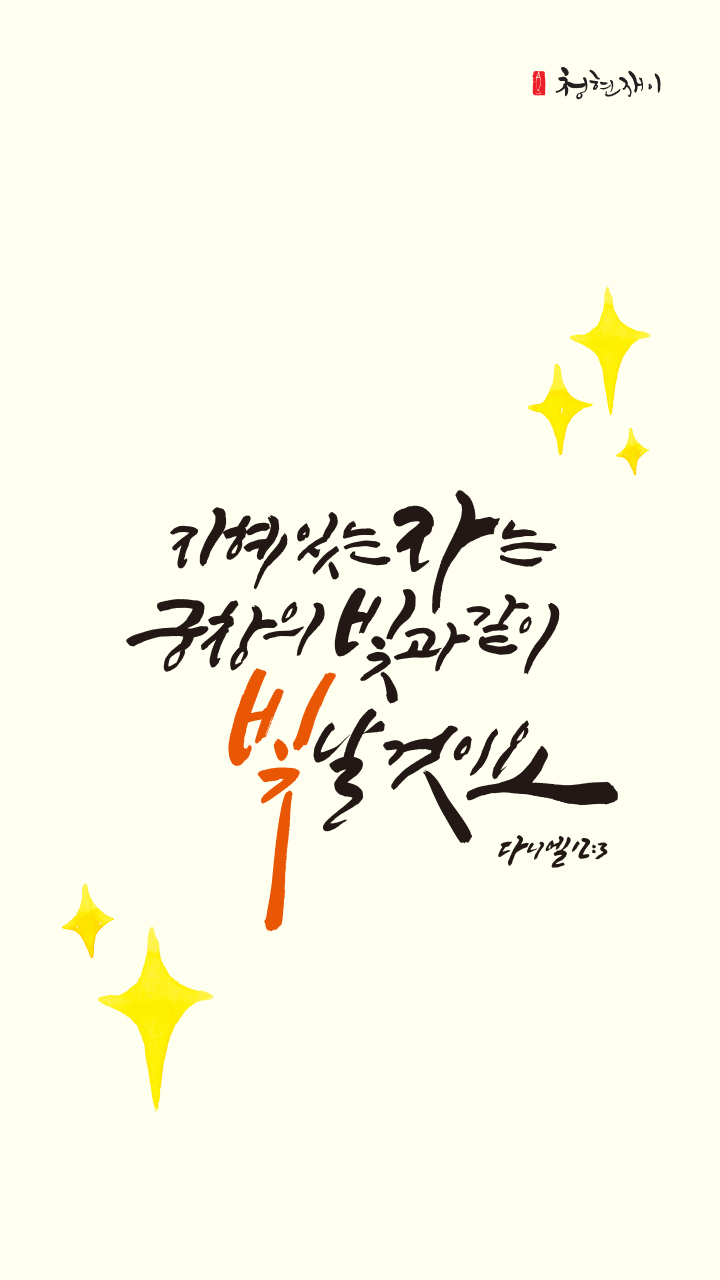 청현재이
지혜 있는 자는
궁창의 빛과 같이
빛날 것이요
다니엘 12:3